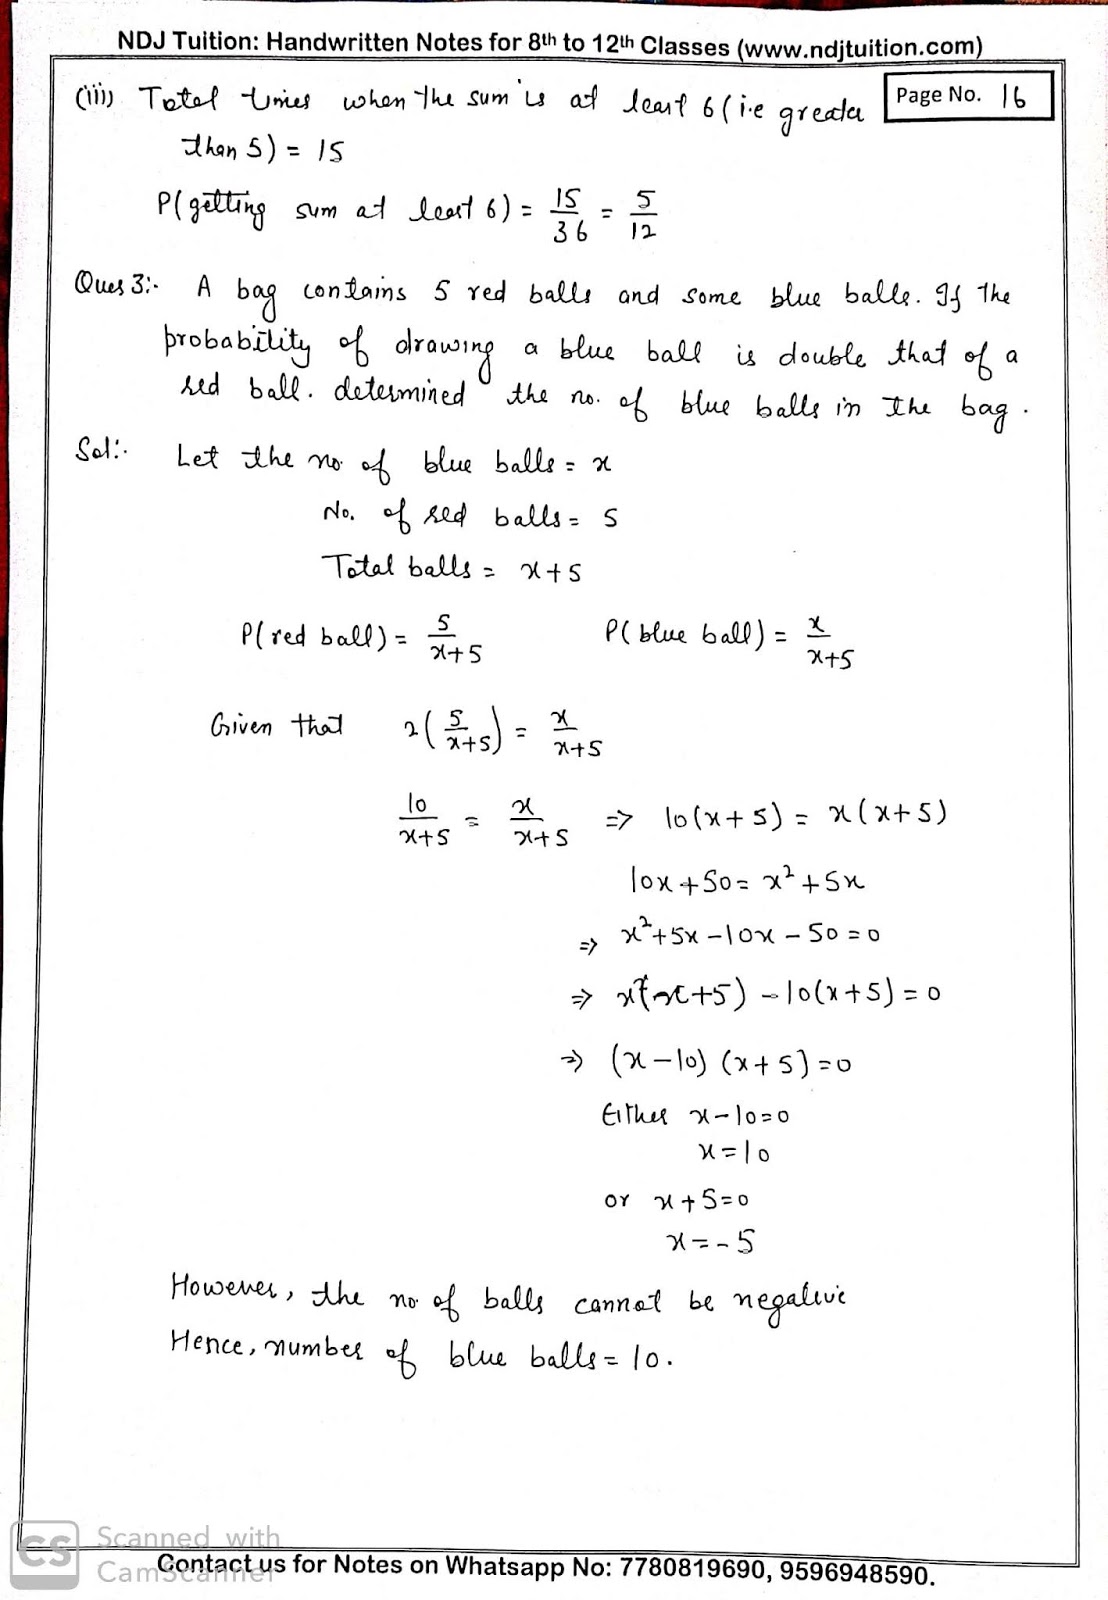 NDJ Tuition: Handwritten Notes for 8th to 12th Classes (www.ndjtuition.com)
Page No. 16
(iii) Total times when the sum is at least 6 (i.e greater
than 5) = 15
P(getting sum at least 6) = 15/36 = 5/12
Ques 3:- A bag contains 5 red balls and some blue balls. If the
probability of drawing a blue ball is double that of a
red ball. determined the no. of blue balls in the bag.
Sol:- Let the no. of blue balls = x
No. of red balls = 5
Total balls = x+5
P(red ball) = 5/(x+5) P(blue ball) = x/(x+5)
Given that 2(5/(x+5)) = x/(x+5)
10/(x+5) = x/(x+5) ⇒ 10(x+5) = x(x+5)
10x+50 = x²+5x
⇒ x²+5x-10x-50=0
⇒ x(x+5) -10(x+5)=0
⇒ (x-10) (x+5)=0
Either x-10=0
x=10
or x+5=0
x=-5
However, the no. of balls cannot be negative
Hence, number of blue balls = 10.
CS Scanned with
CamScanner
Contact us for Notes on Whatsapp No: 7780819690, 9596948590.